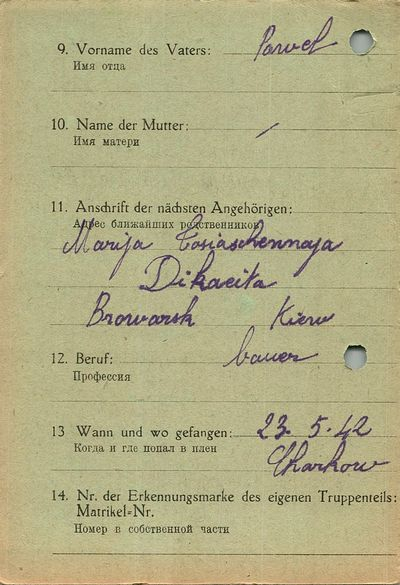 9. Vorname des Vaters: Pavel
Имя отца
10. Name der Mutter: /
Имя матери
11. Anschrift der nächsten Angehörigen:
Адрес ближайших родственников
Marija
Browarsk Kiew
12. Beruf: bauer
Профессия
13 Wann und wo gefangen: 23. 5. 42
Когда и где попал в плен
Charkow
14. Nr. der Erkennungsmarke des eigenen Truppenteils:
Matrikel=Nr.
Номер в собственной части